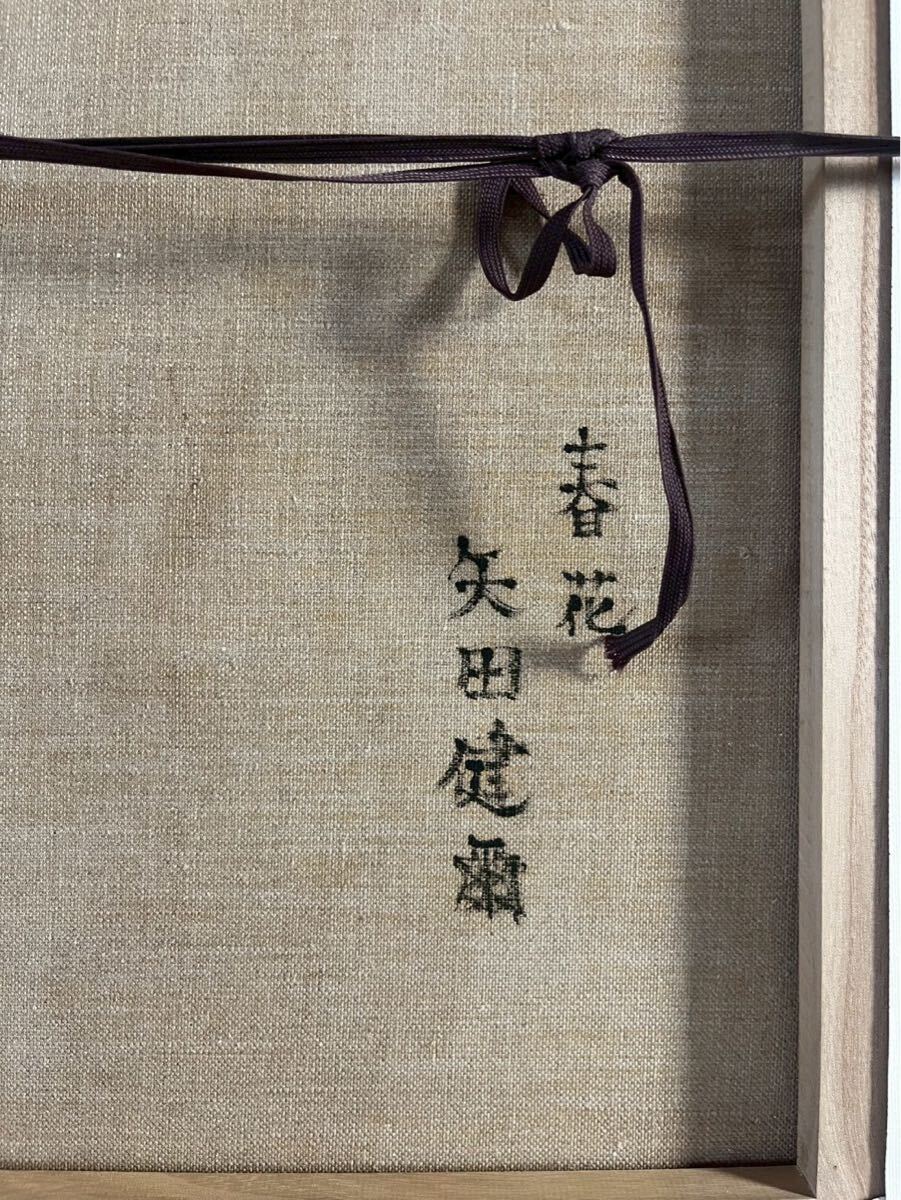 春花
矢田健爾